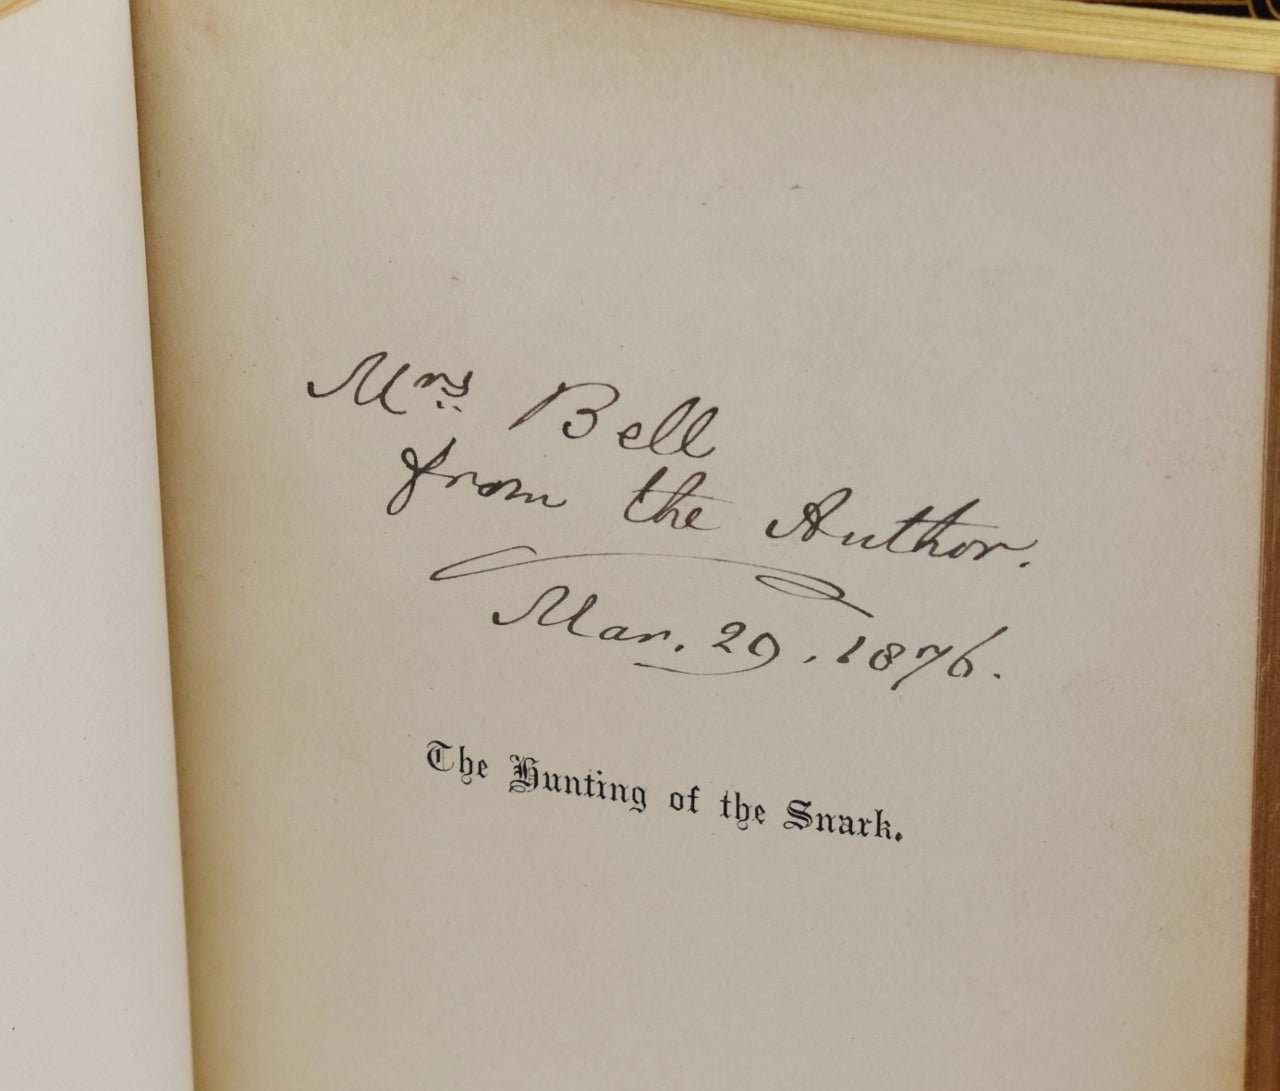 Mrs Bell
from the Author.
Mar. 29. 1876.
The Hunting of the Snark.